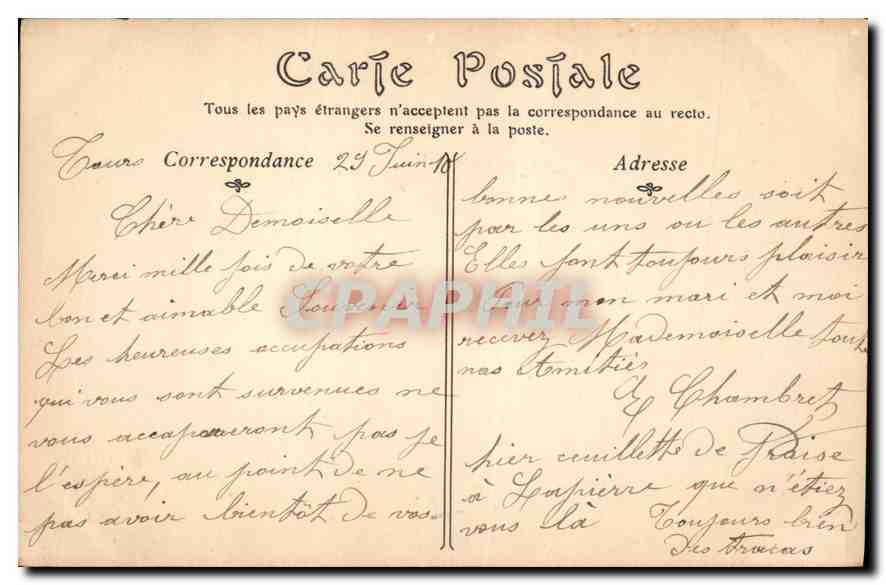 Carte Postale
Tous les pays étrangers n'acceptent pas la correspondance au recto.
Se renseigner à la poste.
Correspondance
Adresse
Tours 29 Juin 10
Chère Demoiselle
Merci mille fois de votre
bon et aimable Souvenir
Les heureuses occupations
qui vous sont survenues ne
vous accapareront pas je
l'espère, au point de ne
pas avoir bientôt de vos
bonne nouvelles soit
par les uns ou les autres
Elles font toujours plaisir
Pour mon mari et moi
recevez Mademoiselle toute
nos Amitiés
E Chambret
hier cueillette de Fraise
à Lapierre que n'étiez
vous là Toujours bien
des tracas
CPAPHIL